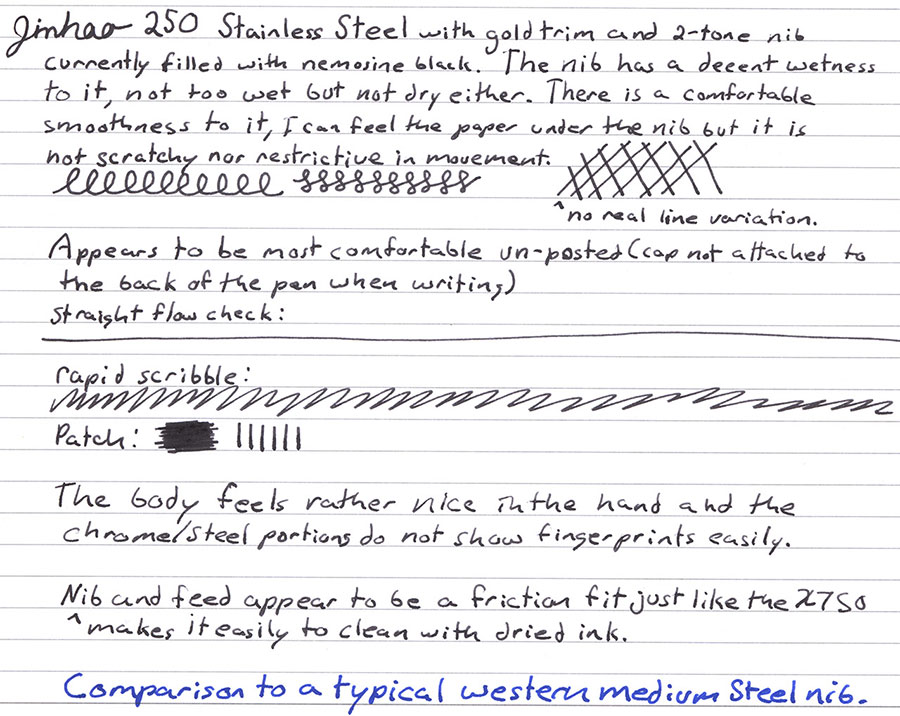 Jinhao 250 Stainless Steel with gold trim and 2-tone nib
currently filled with nemosine black. The nib has a decent wetness
to it, not too wet but not dry either. There is a comfortable
smoothness to it, I can feel the paper under the nib but it is
not scratchy nor restrictive in movement.
^no real line variation.
Appears to be most comfortable un-posted (cap not attached to
the back of the pen when writing)
straight flow check:
rapid scribble:
Patch:
The body feels rather nice in the hand and the
chrome/steel portions do not show fingerprints easily.
Nib and feed appear to be a friction fit just like the X750
^makes it easily to clean with dried ink.
Comparison to a typical western medium steel nib.